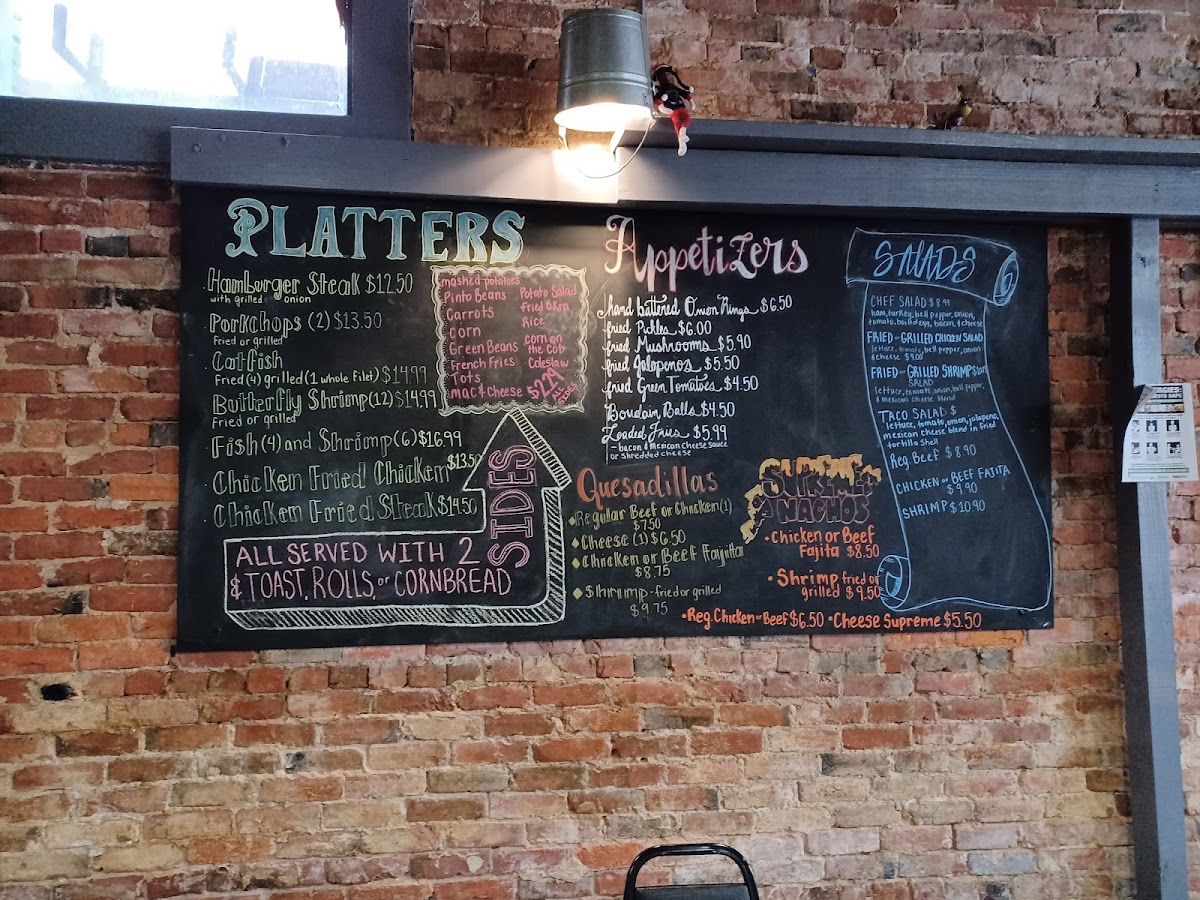 PLATTERS
Hamburger Steak $12.50
with grilled onion
Porkchops (2) $13.50
Fried or grilled
Catfish
Fried (4) grilled (1 whole filet) $14.99
Butterfly Shrimp (12) $14.99
Fried or grilled
Fish (4) and Shrimp (6) $16.99
Chicken Fried Chicken $13.50
Chicken Fried Steak $14.50
ALL SERVED WITH 2
& TOAST, ROLLS, or CORNBREAD
SIDES
mashed potatoes
Pinto Beans
Carrots
corn
Green Beans
French Fries
Tots
mac & Cheese
Potato Salad
Fried Okra
Rice
corn on
the cob
Coleslaw
$2.29
ALL
SIDES
Appetizers
hand battered Onion Rings $6.50
fried Pickles $6.00
fried Mushrooms $5.90
fried Jalapenos $5.50
fried Green Tomatoes $4.50
Boudain Balls $4.50
Loaded Fries $5.99
- bacon & mexican cheese sauce
or shredded cheese
Quesadillas
Regular Beef or Chicken (1)
$7.50
Cheese (1) $6.50
Chicken or Beef Fajita
$8.75
Shrimp - fried or grilled
$9.75
SUPREME
NACHOS
• Chicken or Beef
Fajita $8.50
• Shrimp fried or
grilled $9.50
• Reg. Chicken or Beef $6.50 • Cheese Supreme $5.50
SALADS
CHEF SALAD $8.99
ham, turkey, bell pepper, onion,
tomato, boiled egg, bacon, & cheese
FRIED or GRILLED CHICKEN SALAD
lettuce, tomato, bell pepper, onion
& cheese $9.00
FRIED or GRILLED SHRIMP
SALAD
lettuce, tomato, onion, bell pepper,
& mexican cheese blend
TACO SALAD $
lettuce, tomato, onion, jalapeno,
mexican cheese blend in fried
tortilla shell
Reg. Beef $8.90
CHICKEN or BEEF FAJITA
$9.90
SHRIMP $10.90